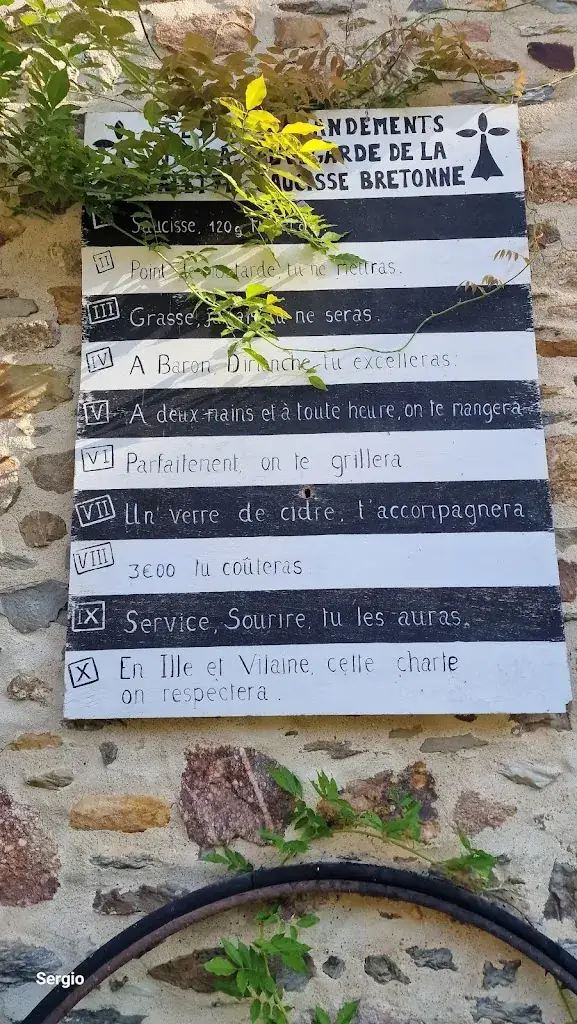 SAUCISSE BRETONNE
Saucisse, 120g
II Point de moutarde tu ne mettras.
III Grasse, jamais tu ne seras.
IV A Baron Dimanche tu excelleras.
V A deux mains et à toute heure, on te mangera
VI Parfaitement, on te grillera
VII Un verre de cidre, t'accompagnera
VIII 3€00 tu coûteras
IX Service, Sourire, tu les auras.
X En Ille et Vilaine, cette charte
on respectera.
Sergio